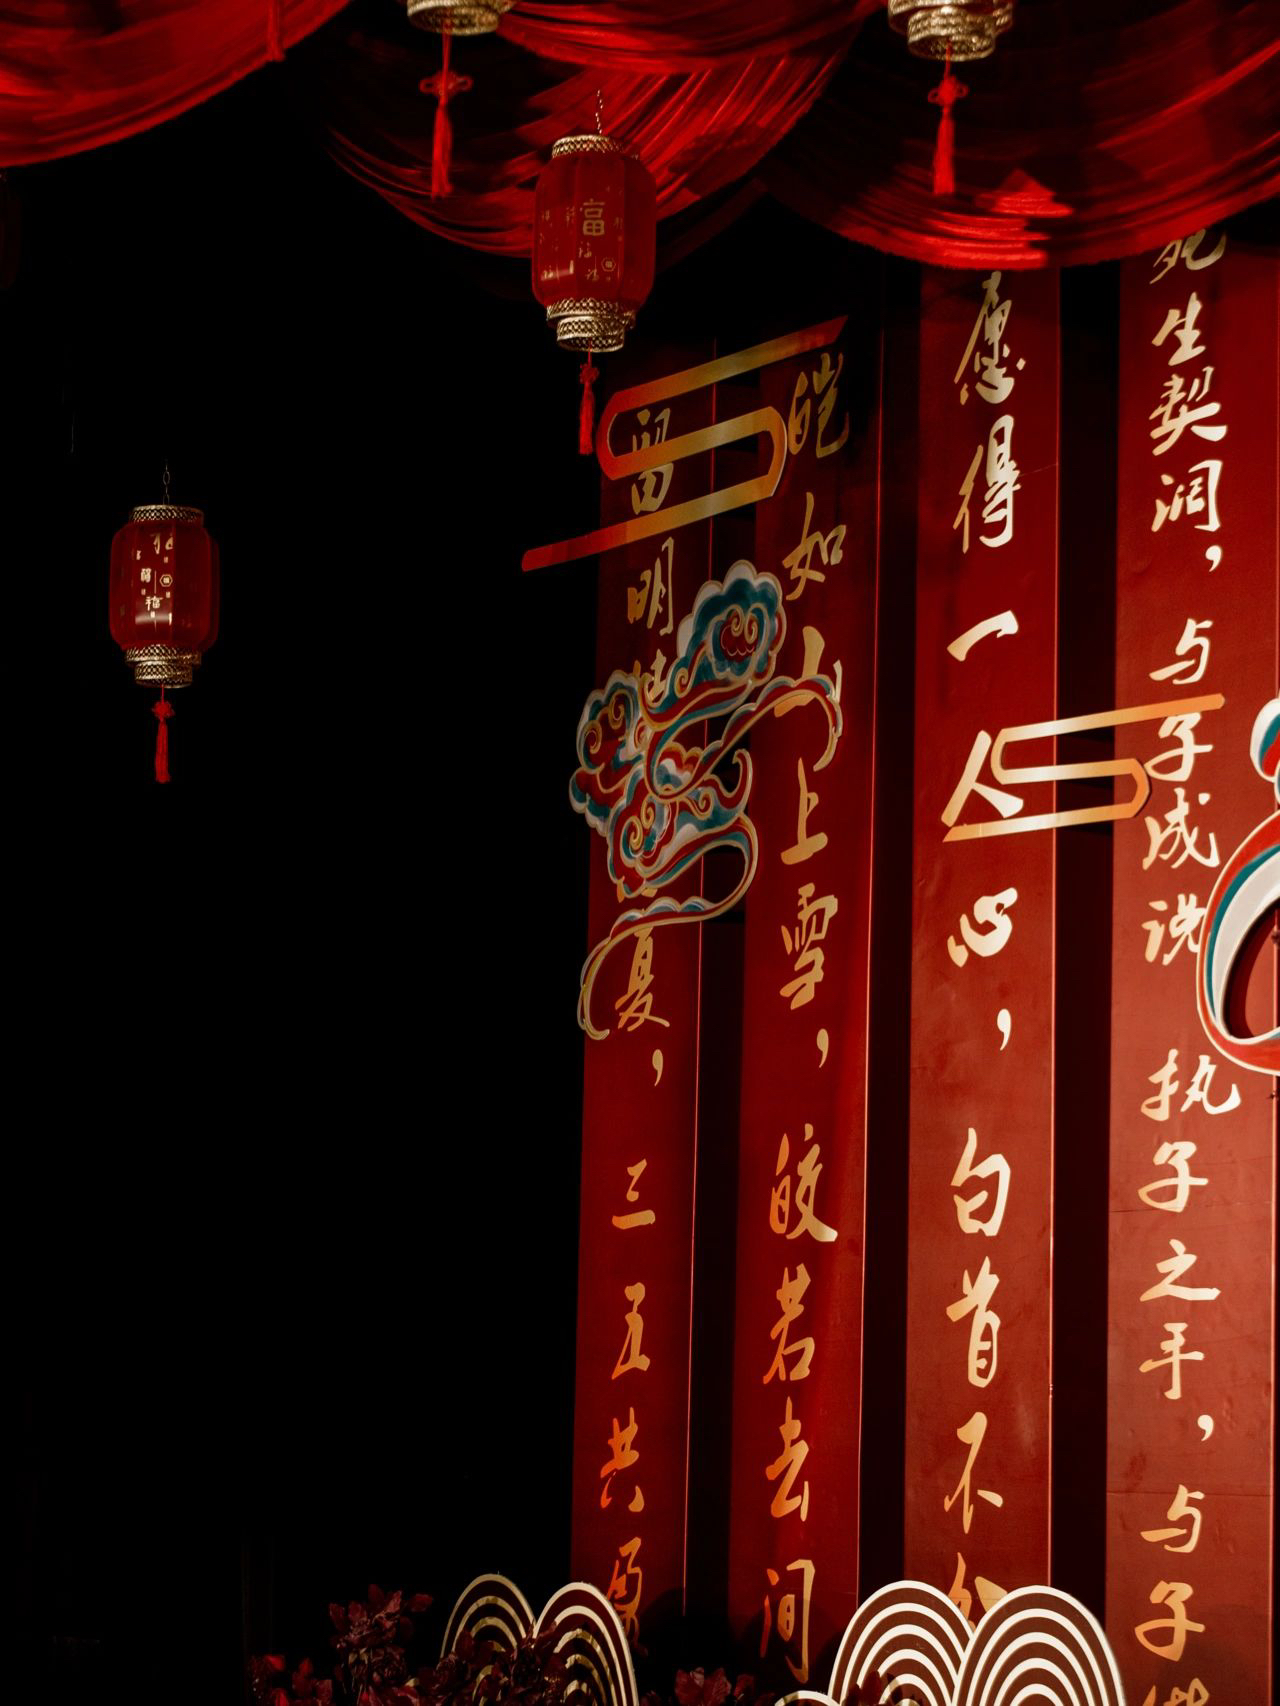 死生契阔，与子成说 执子之手，与子
愿得一人心，白首不
皑如山上雪，皎若去间
留明夏，三五共盈
福
福